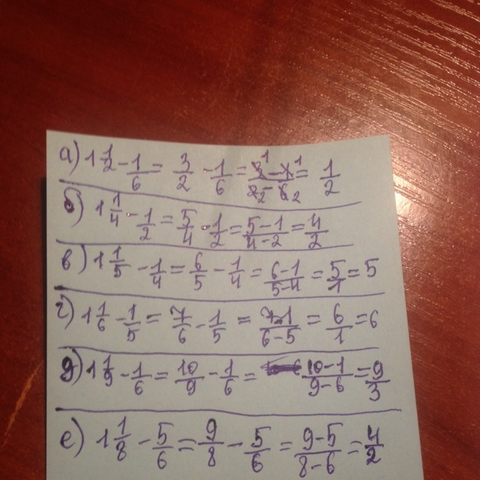 а) 1 1/2 - 1/6 = 3/2 - 1/6 = 3¹-1¹/2-6₂ = 1/2
б) 1 1/4 - 1/2 = 5/4 - 1/2 = 5-1/4-2 = 4/2
в) 1 1/5 - 1/4 = 6/5 - 1/4 = 6-1/5-4 = 5/1 = 5
г) 1 1/6 - 1/5 = 7/6 - 1/5 = 7-1/6-5 = 6/1 = 6
д) 1 1/9 - 1/6 = 10/9 - 1/6 = 10-1/9-6 = 9/3
е) 1 1/8 - 5/6 = 9/8 - 5/6 = 9-5/8-6 = 4/2